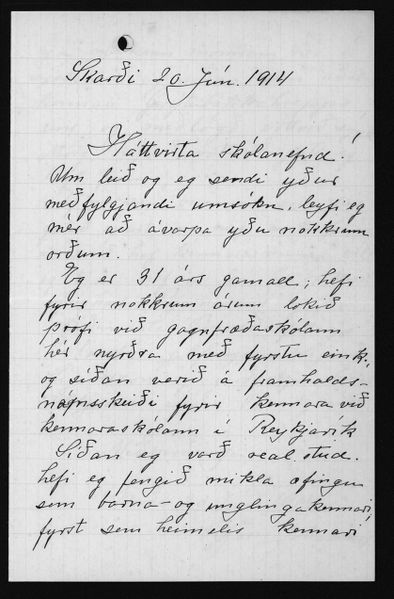 Skarði 20. Jún. 1914
Háttvirta skólanefnd!
Um leið og eg sendi yður
meðfylgjandi umsókn, leyfi eg
mér að ávarpa yðu nokkrum
orðum.
Eg er 31 árs gamall; hefi
fyrir nokkrum árum lokið
prófi við gagnfræðaskólann
hér nyrðra með fyrstu eink.
og síðan verið á framhalds-
námsskeiði fyrir kennara við
kennaraskólann í Reykjavík
Síðan eg varð real stud.
hefi eg fengið mikla æfingu
sem barna- og unglingakennari,
fyrst sem heimilis kennari